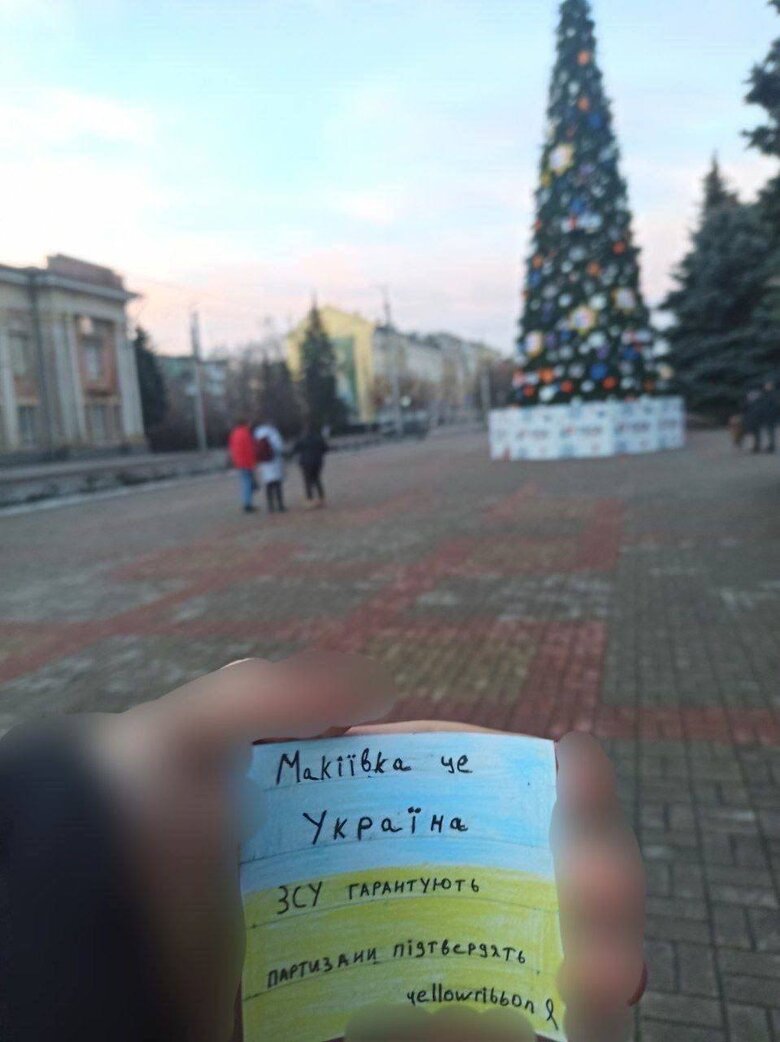 Макіївка це
Україна
ЗСУ гарантують
партизани підтвердять
yellowribbon